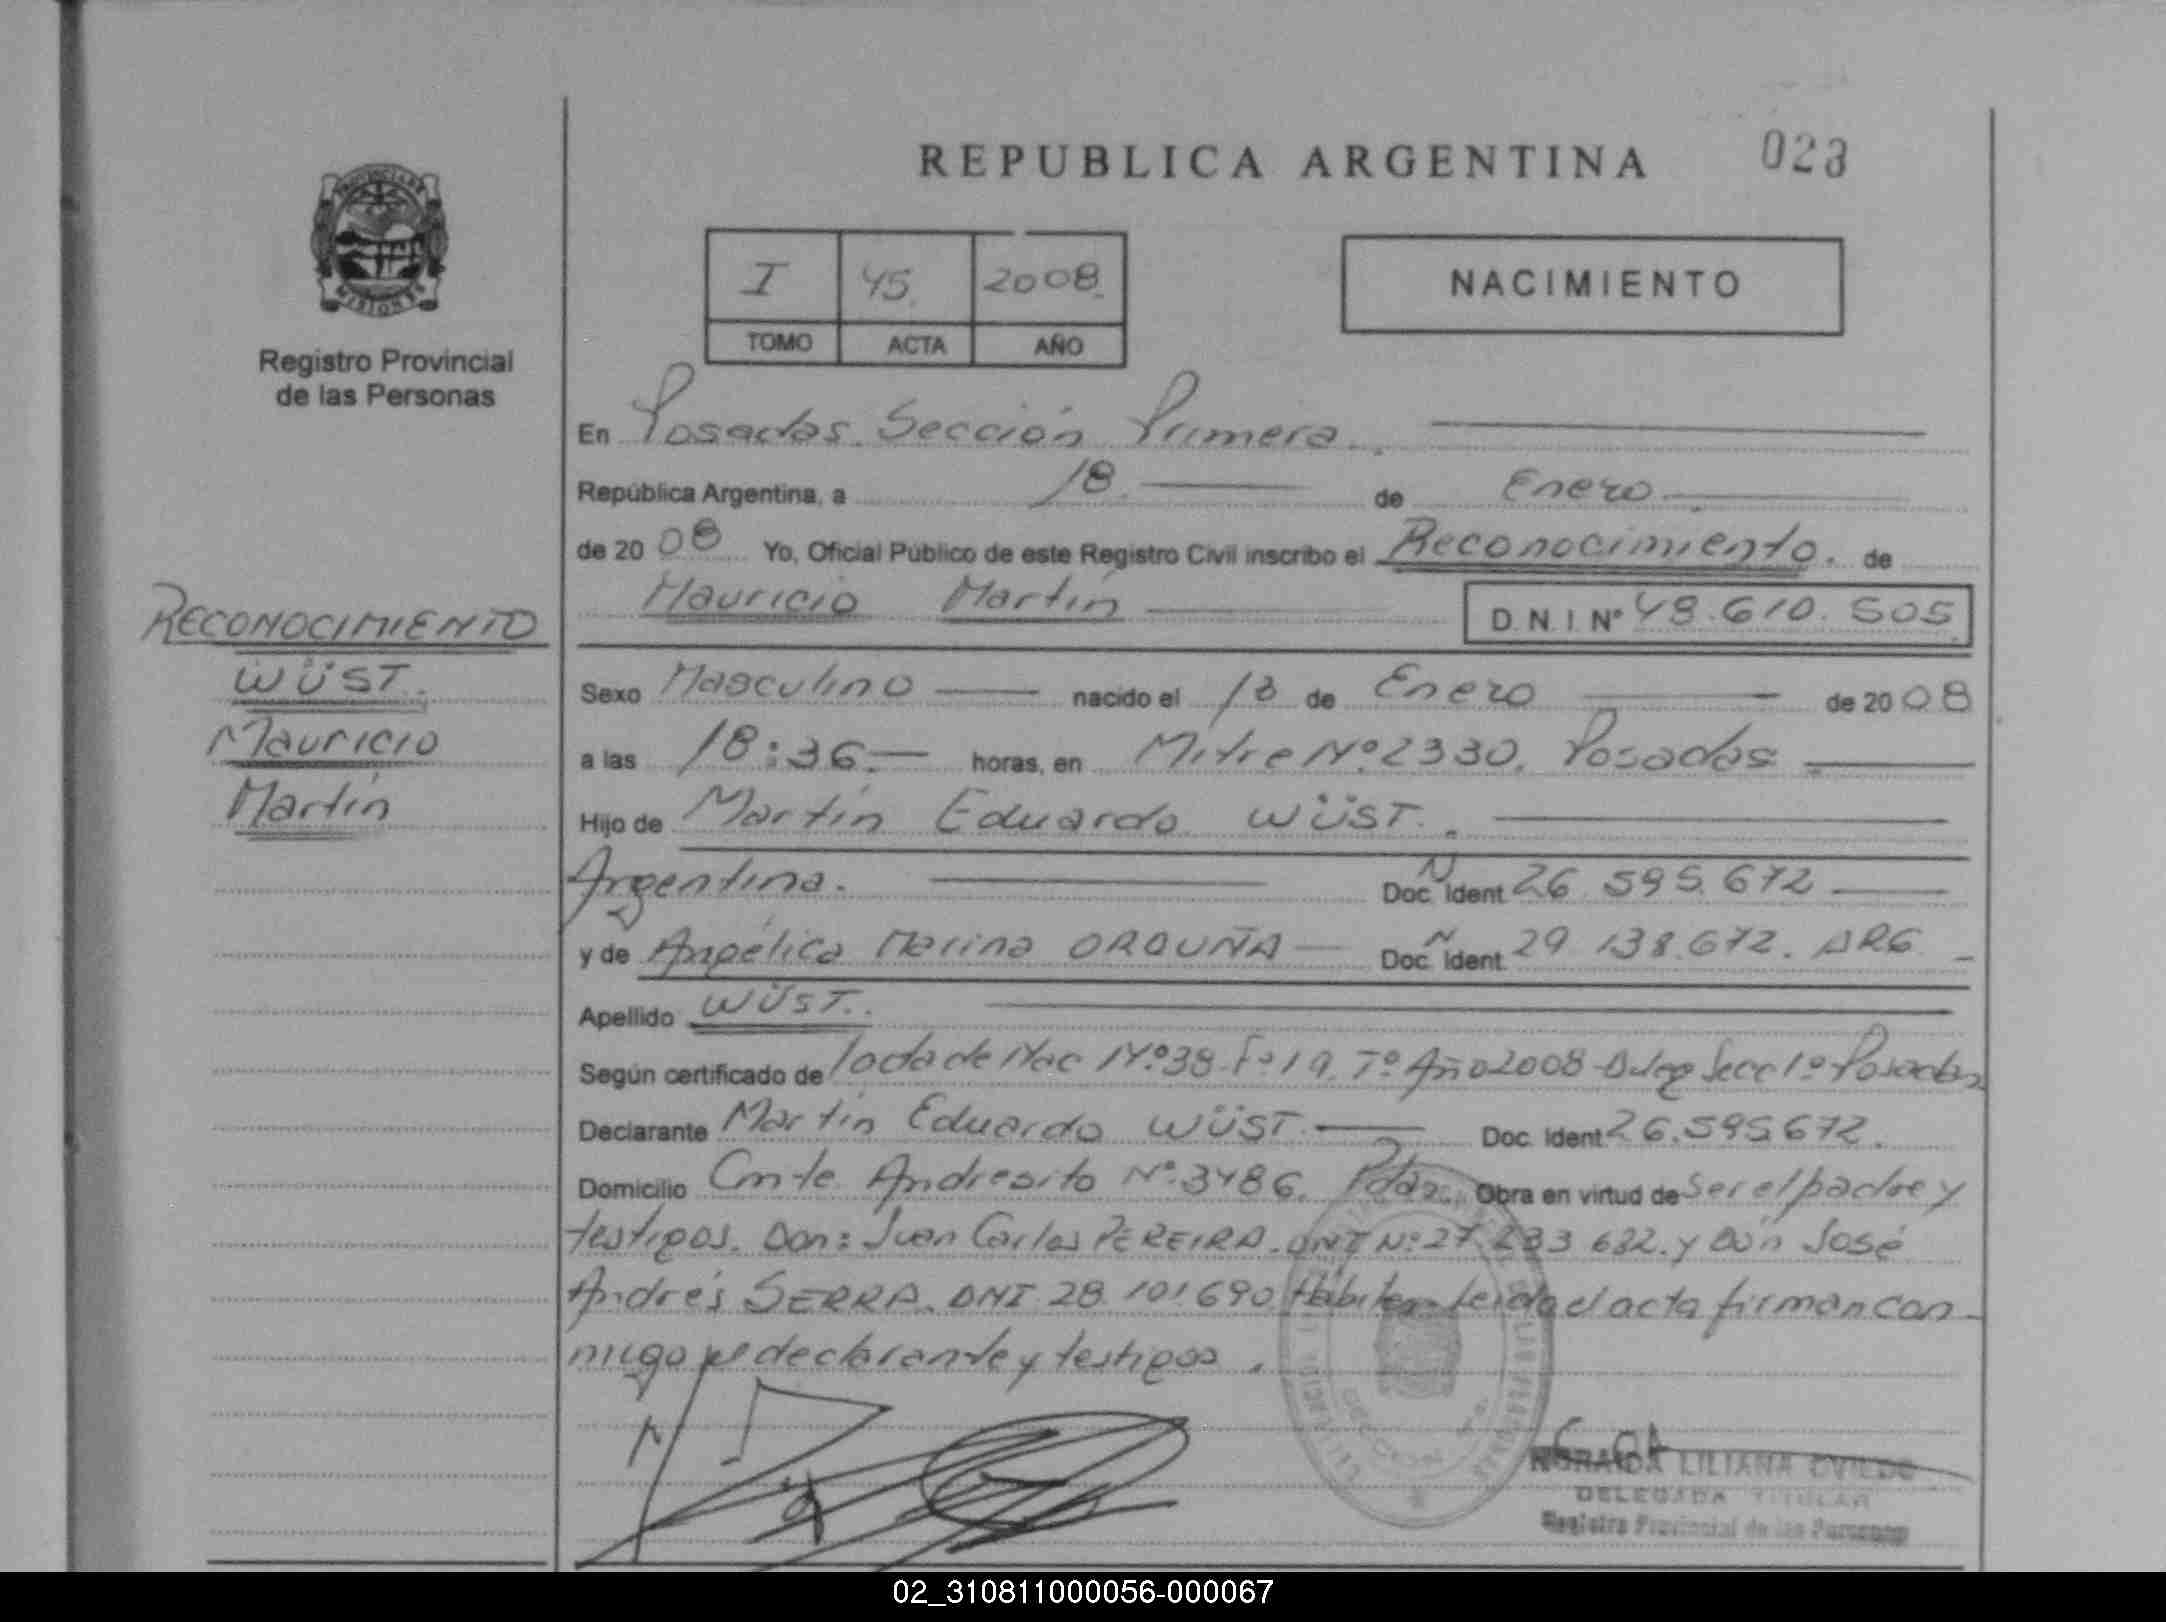 REPUBLICA ARGENTINA
023
PROVINCIA DE
MISIONES
Registro Provincial
de las Personas
I 45. 2008.
TOMO ACTA AÑO
NACIMIENTO
En Posadas. Sección Primera.
República Argentina, a 18 de Enero
de 2008 Yo, Oficial Público de este Registro Civil inscribo el Reconocimiento. de
Mauricio Martín D.N.I. Nº 48.610.505
RECONOCIMIENTO
WÜST.
Mauricio
Martín
Sexo Masculino nacido el de Enero de 2008
a las 18:36.- horas, en Mitre Nº 2330. Posadas.
Hijo de Martín Eduardo WÜST.
Argentina. Doc. Ident. 26.595.672
y de Angélica Marina ORQUÑA Doc. Ident. 29.138.672. ARG.
Apellido WÜST.
Según certificado de Nac Nº 38. Fº 19. Tº Año 2008 Secc 1º Posadas
Declarante Martín Eduardo WÜST. Doc. Ident 26.595.672.
Domicilio Cmte Andresito Nº 3486. Pdas. Obra en virtud de Ser el padre y
testigos. Don: Juan Carlos PEREIRA. DNI Nº 27.233.632. y Don José
Andrés SERRA. DNI 28.101.690 Hábiles. leida el acta firman con
migo el declarante y testigos.
SECCION 1a.
NORAIDA LILIANA OVIEDO
DELEGADA TITULAR
Registro Provincial de las Personas
02_310811000056-000067